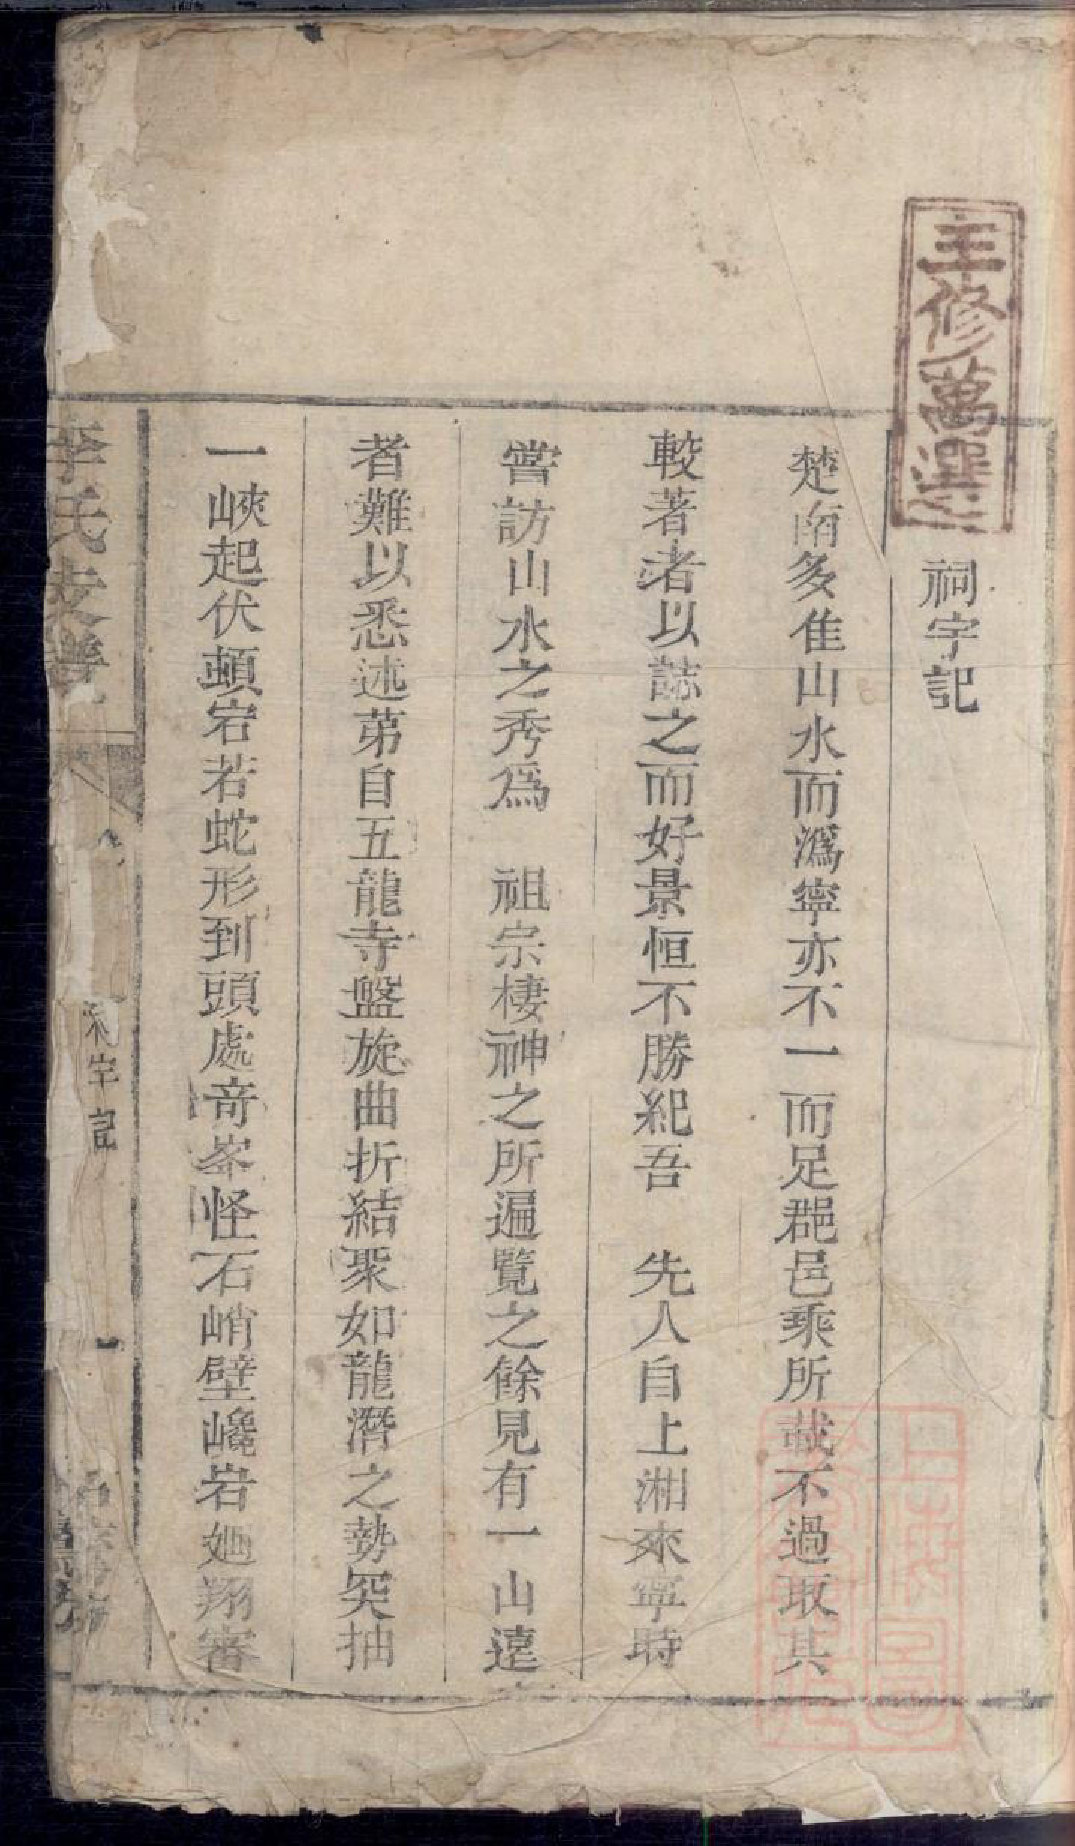 主修萬選
祠宇記
楚南多佳山水而溈寧亦不一而足郡邑乘所載不過取其
較著者以誌之而好景恒不勝紀吾　先人自上湘來寧時
嘗訪山水之秀爲　祖宗棲神之所遍覽之餘見有一山遠
者難以悉述第自五龍寺盤旋曲折結聚如龍潛之勢突抽
一峽起伏頓宕若蛇形到頭處奇峯怪石峭壁巉岩迴翔審
李氏支譜
祠宇記